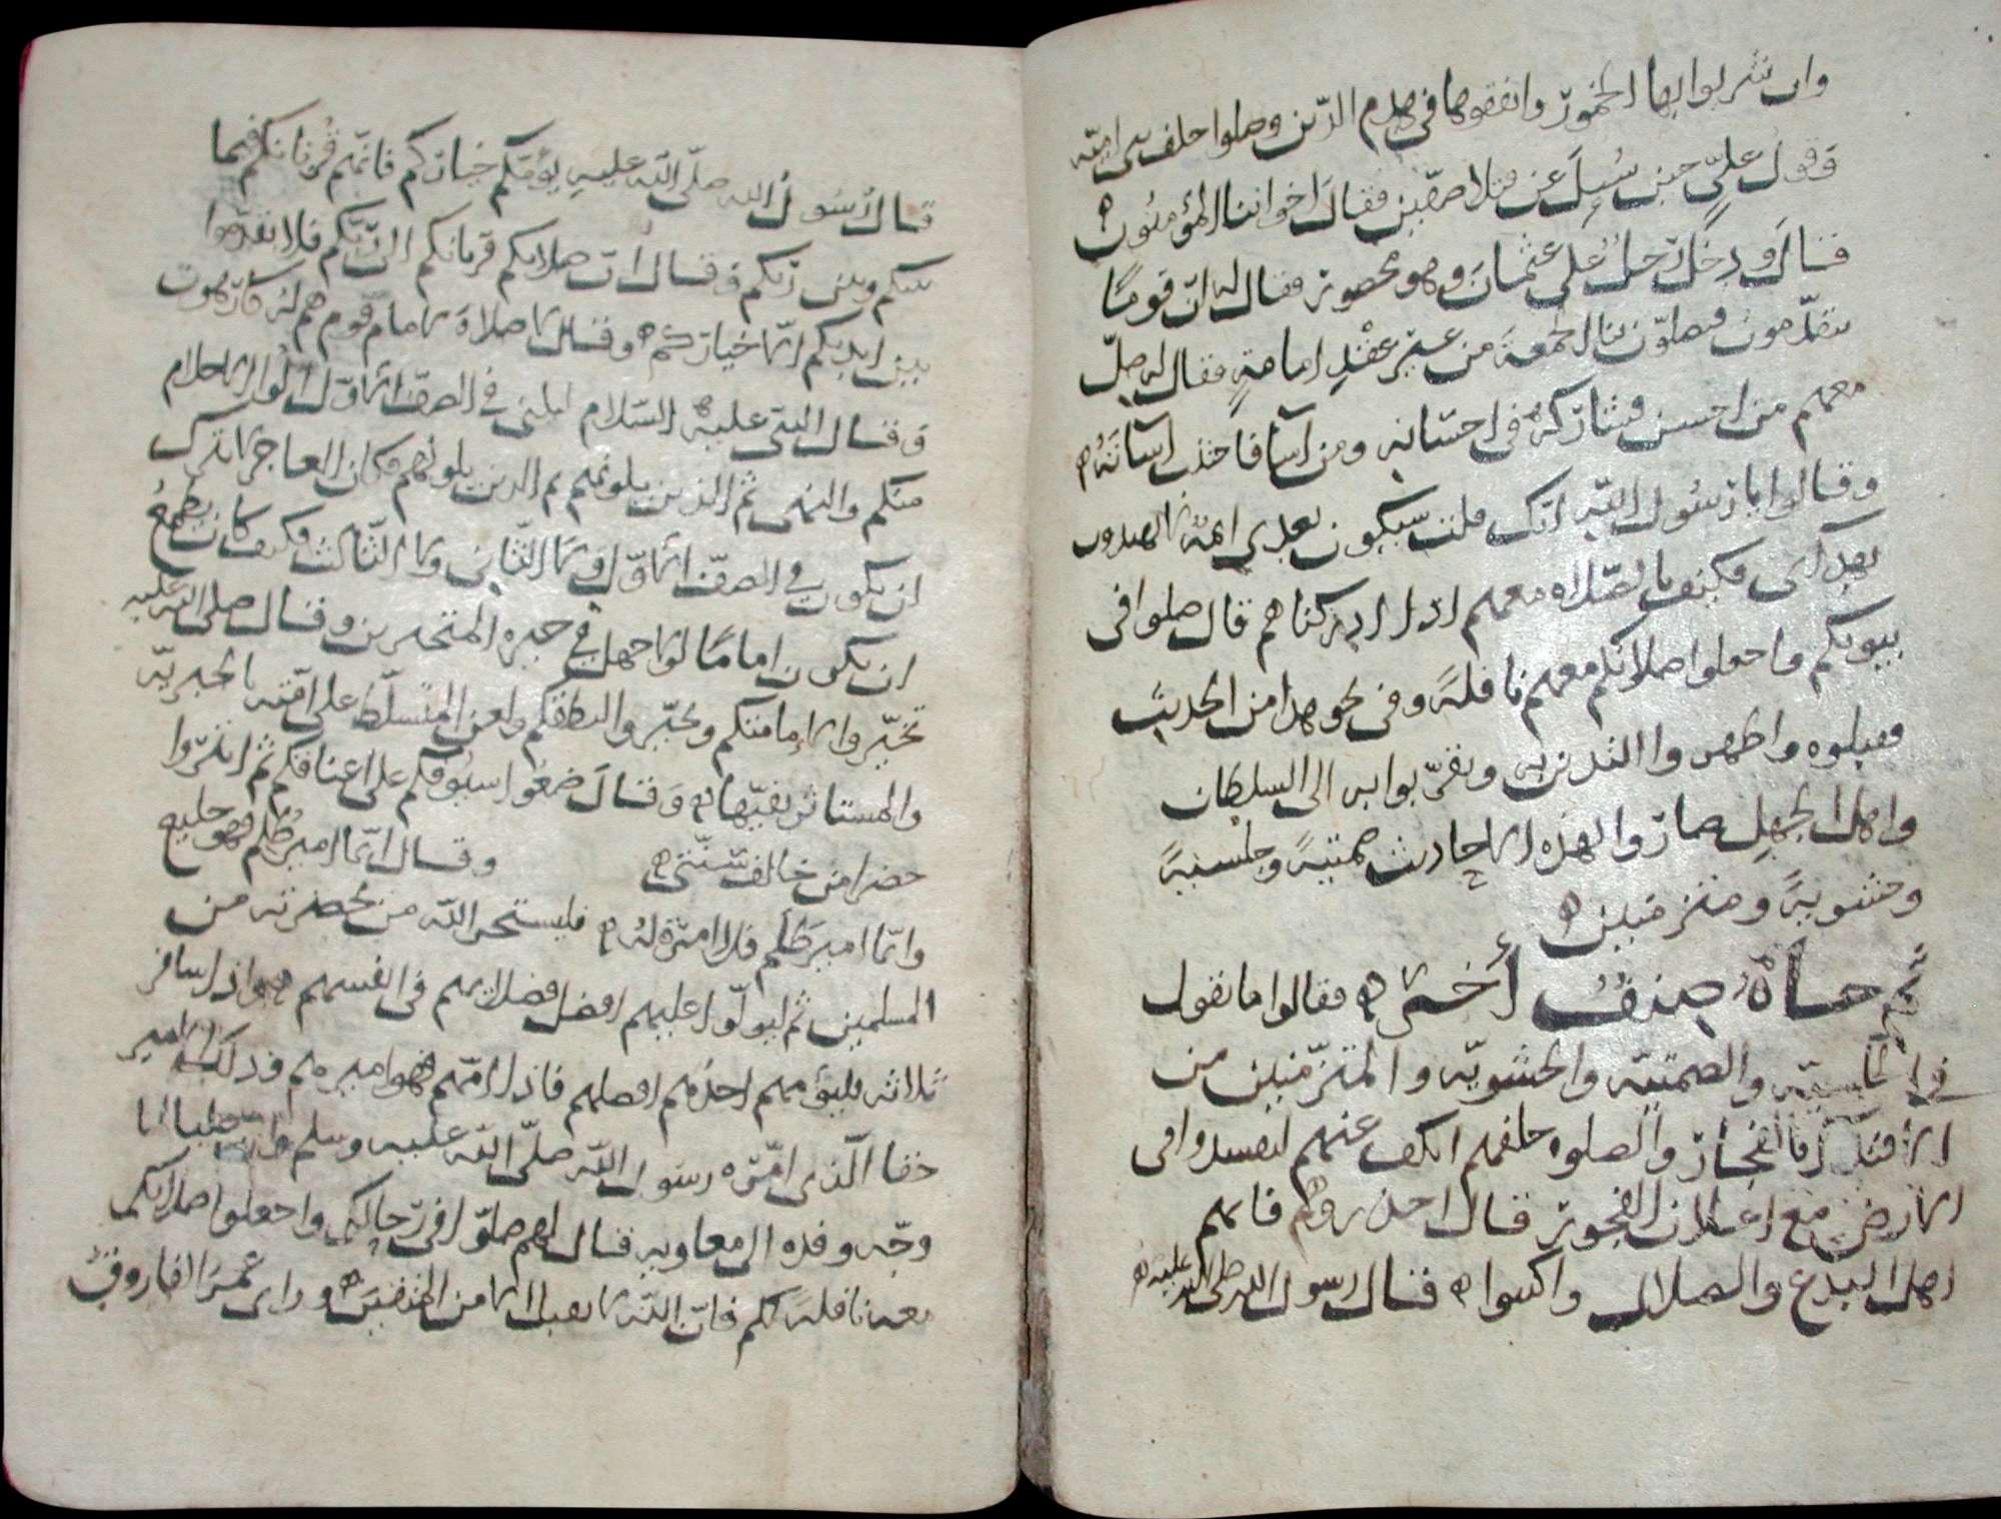 وان شربوا بها الخمور وانفقوها في هدم الدين وصلوا خلف بني امية
وقول علي حين سُيل عن قتلا صفين فقال اخواننا المؤمنون ه
قال ودخل رجل على عثمان وهو محصور فقال له ان قومًا
يتقدمون فيصلون بنا الجمعة من غير عقد امامةٍ فقال له صلّ
معهم من احسن فشاركه في احسانه ومن اسآ فاجتنب اسآته ه
وقالوا يا رسول الله انك قلت سيكون بعدي ايمة لا يهدون
بهداي فكيف بالصلاه معهم اذا ادركناهم قال صلوا في
بيوتكم واجعلوا صلاتكم معهم نافلة وفي نحو هذا من الحديث
فقبلوه واظهروا التدين به وتقربوا به الى السلطان
واهل الجهل صاروا لهذه الاحاديث صمتيةً وجلسيةً
وحشويةً ومتزمتين ه
ثم جاه صنف أخر ه فقالوا ما تقول
في الجلسيّه والصمتيّه والحشويّه والمتزمّتين من
الاقتدا بالفجار والصلوه خلفهم الكف عنهم ليفسدوا في
الارض مع اعلان الفجور قال احذروهم فانهم
اهل البدع والضلال واكتبوا ه قال رسول الله صلى الله عليه ه
قال رسول الله صلّى الله عليه يؤمكم خياركم فانهم قُربانكم فيما
بينكم وبين ربكم وقال ان صلاتكم قربانكم الى ربكم فلا تقدموا
بين ايديكم الا خياركم ه وقال لا صلاة لامام قوم هم له كارهون
وقال النبي عليه السلام ليليني في الصف الاول اولوا الاحلام
منكم والنهى ثم الذين يلونهم ثم الذين يلونهم فكان العاجز لا يترك
ان يكون في الصف الاول ولا الثاني ولا الثالث فكيف كان يطمع
ان يكون امامًا لولا جهل في حيره المتحيرين وقال صلى الله عليه
تخيروا لامامتكم وتخيروا لنطفكم ولعن المتسلط على امته بالجبريه
والمستاثر بفيّها ه وقال ضعوا سيوفكم على اعناقكم ثم
من خالف سنتي ه وقال ايما امير ظلم فهو خليع
وايما امير ظلم فلا امره له ه فليستخر الله من بحضرته من
المسلمين ثم ليولوا عليهم افضل فضلايهم في انفسهم ه واذا سافر
ثلاثه فليؤمهم احدهم افضلهم فاذا امهم فهو اميرهم وذلك الامير
حقا الذي امّره رسول الله صلّى الله عليه وسلم وان عليا لما
وجّه وفده الى معاويه قال لهم صلّوا في رحالكم واجعلوا صلاتكم
معه نافله لكم فان الله لا يقبل الا من المتقين ه وراى عمر الفاروق